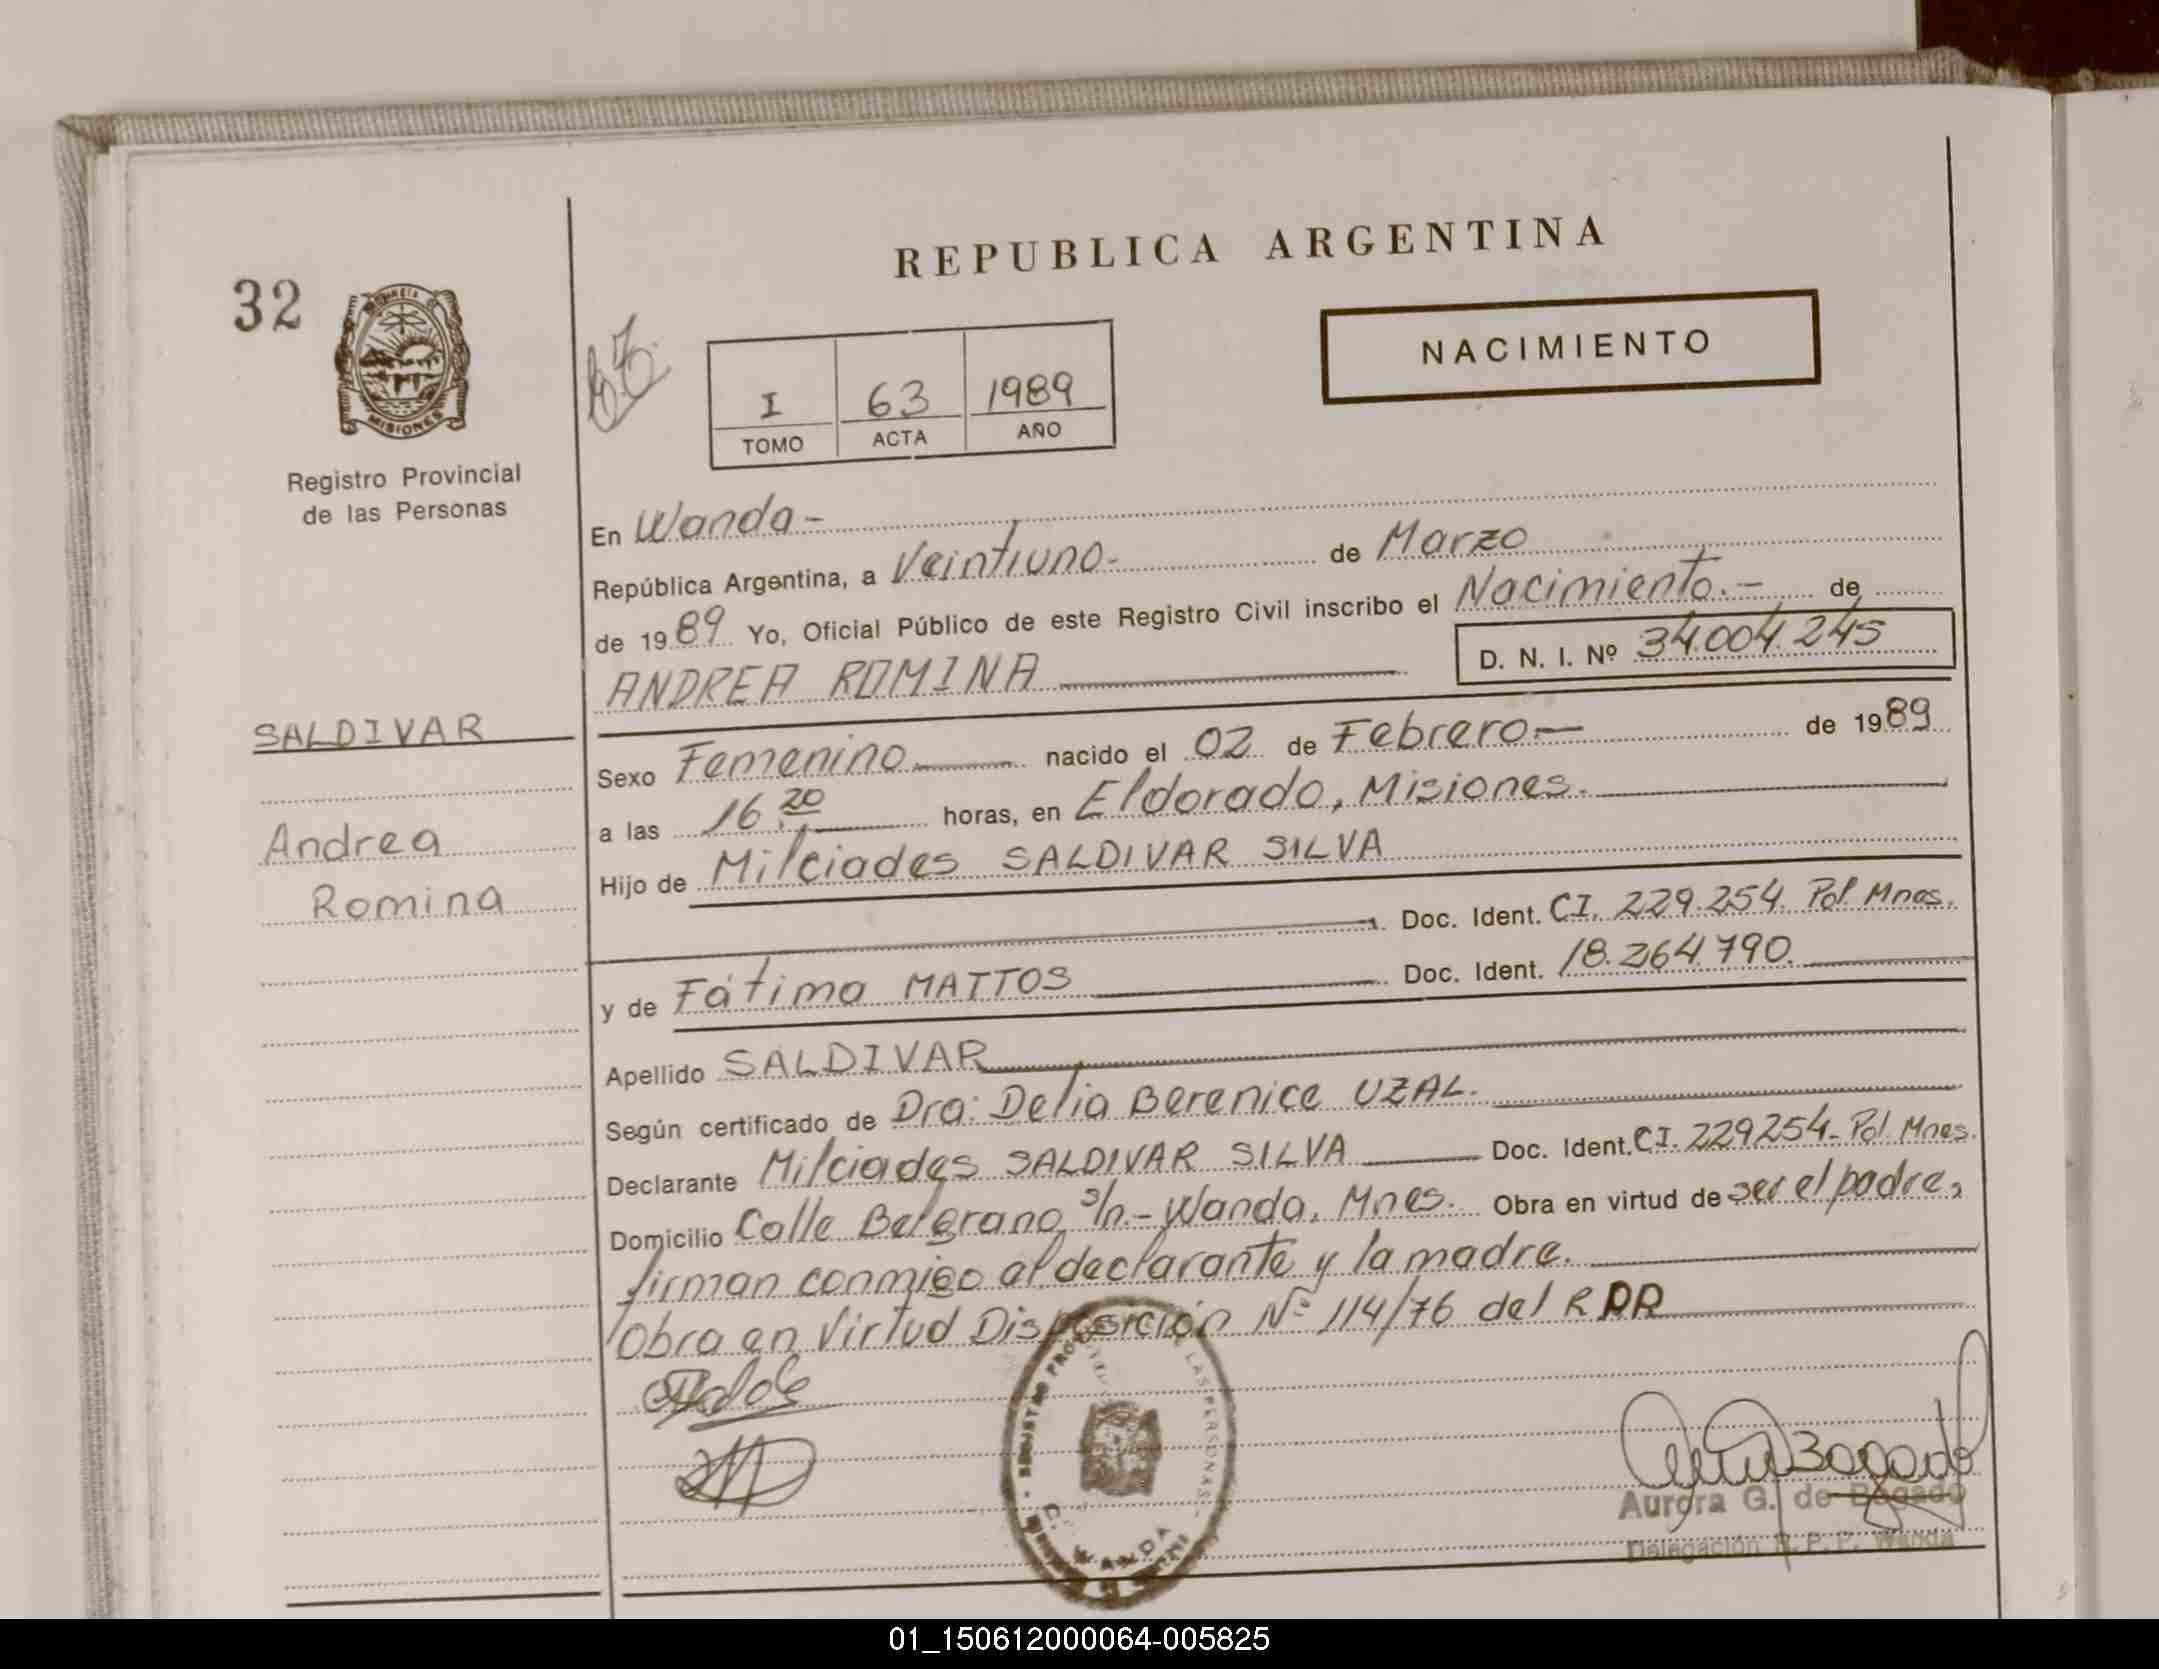 REPUBLICA ARGENTINA
32
PROVINCIA DE
MISIONES
Registro Provincial
de las Personas
NACIMIENTO
I 63 1989
TOMO ACTA AÑO
En Wanda-
República Argentina, a Veintiuno- de Marzo
de 1989 Yo, Oficial Público de este Registro Civil inscribo el Nacimiento.- de
ANDREA ROMINA D. N. I. Nº 34.004.245
SALDIVAR
Andrea
Romina
Sexo Femenino nacido el 02 de Febrero.- de 1989
a las 16.20 horas, en Eldorado, Misiones.
Hijo de Milciades SALDIVAR SILVA
Doc. Ident. CI. 229.254. Pol. Mnes.
y de Fátima MATTOS Doc. Ident. 18.264.790.
Apellido SALDIVAR
Según certificado de Dra: Delia Berenice UZAL.
Declarante Milciades SALDIVAR SILVA Doc. Ident. CI. 229254- Pol. Mnes.
Domicilio Calle Belgrano s/n.- Wanda, Mnes. Obra en virtud de ser el padre,
firman conmigo el declarante y la madre.
Obra en Virtud Disposición Nº 114/76 del RPP
LAS PERSONAS
WANDA
Bogado
Aurora G. de Bogado
Delegación R. P. P. Wanda
01_150612000064-005825